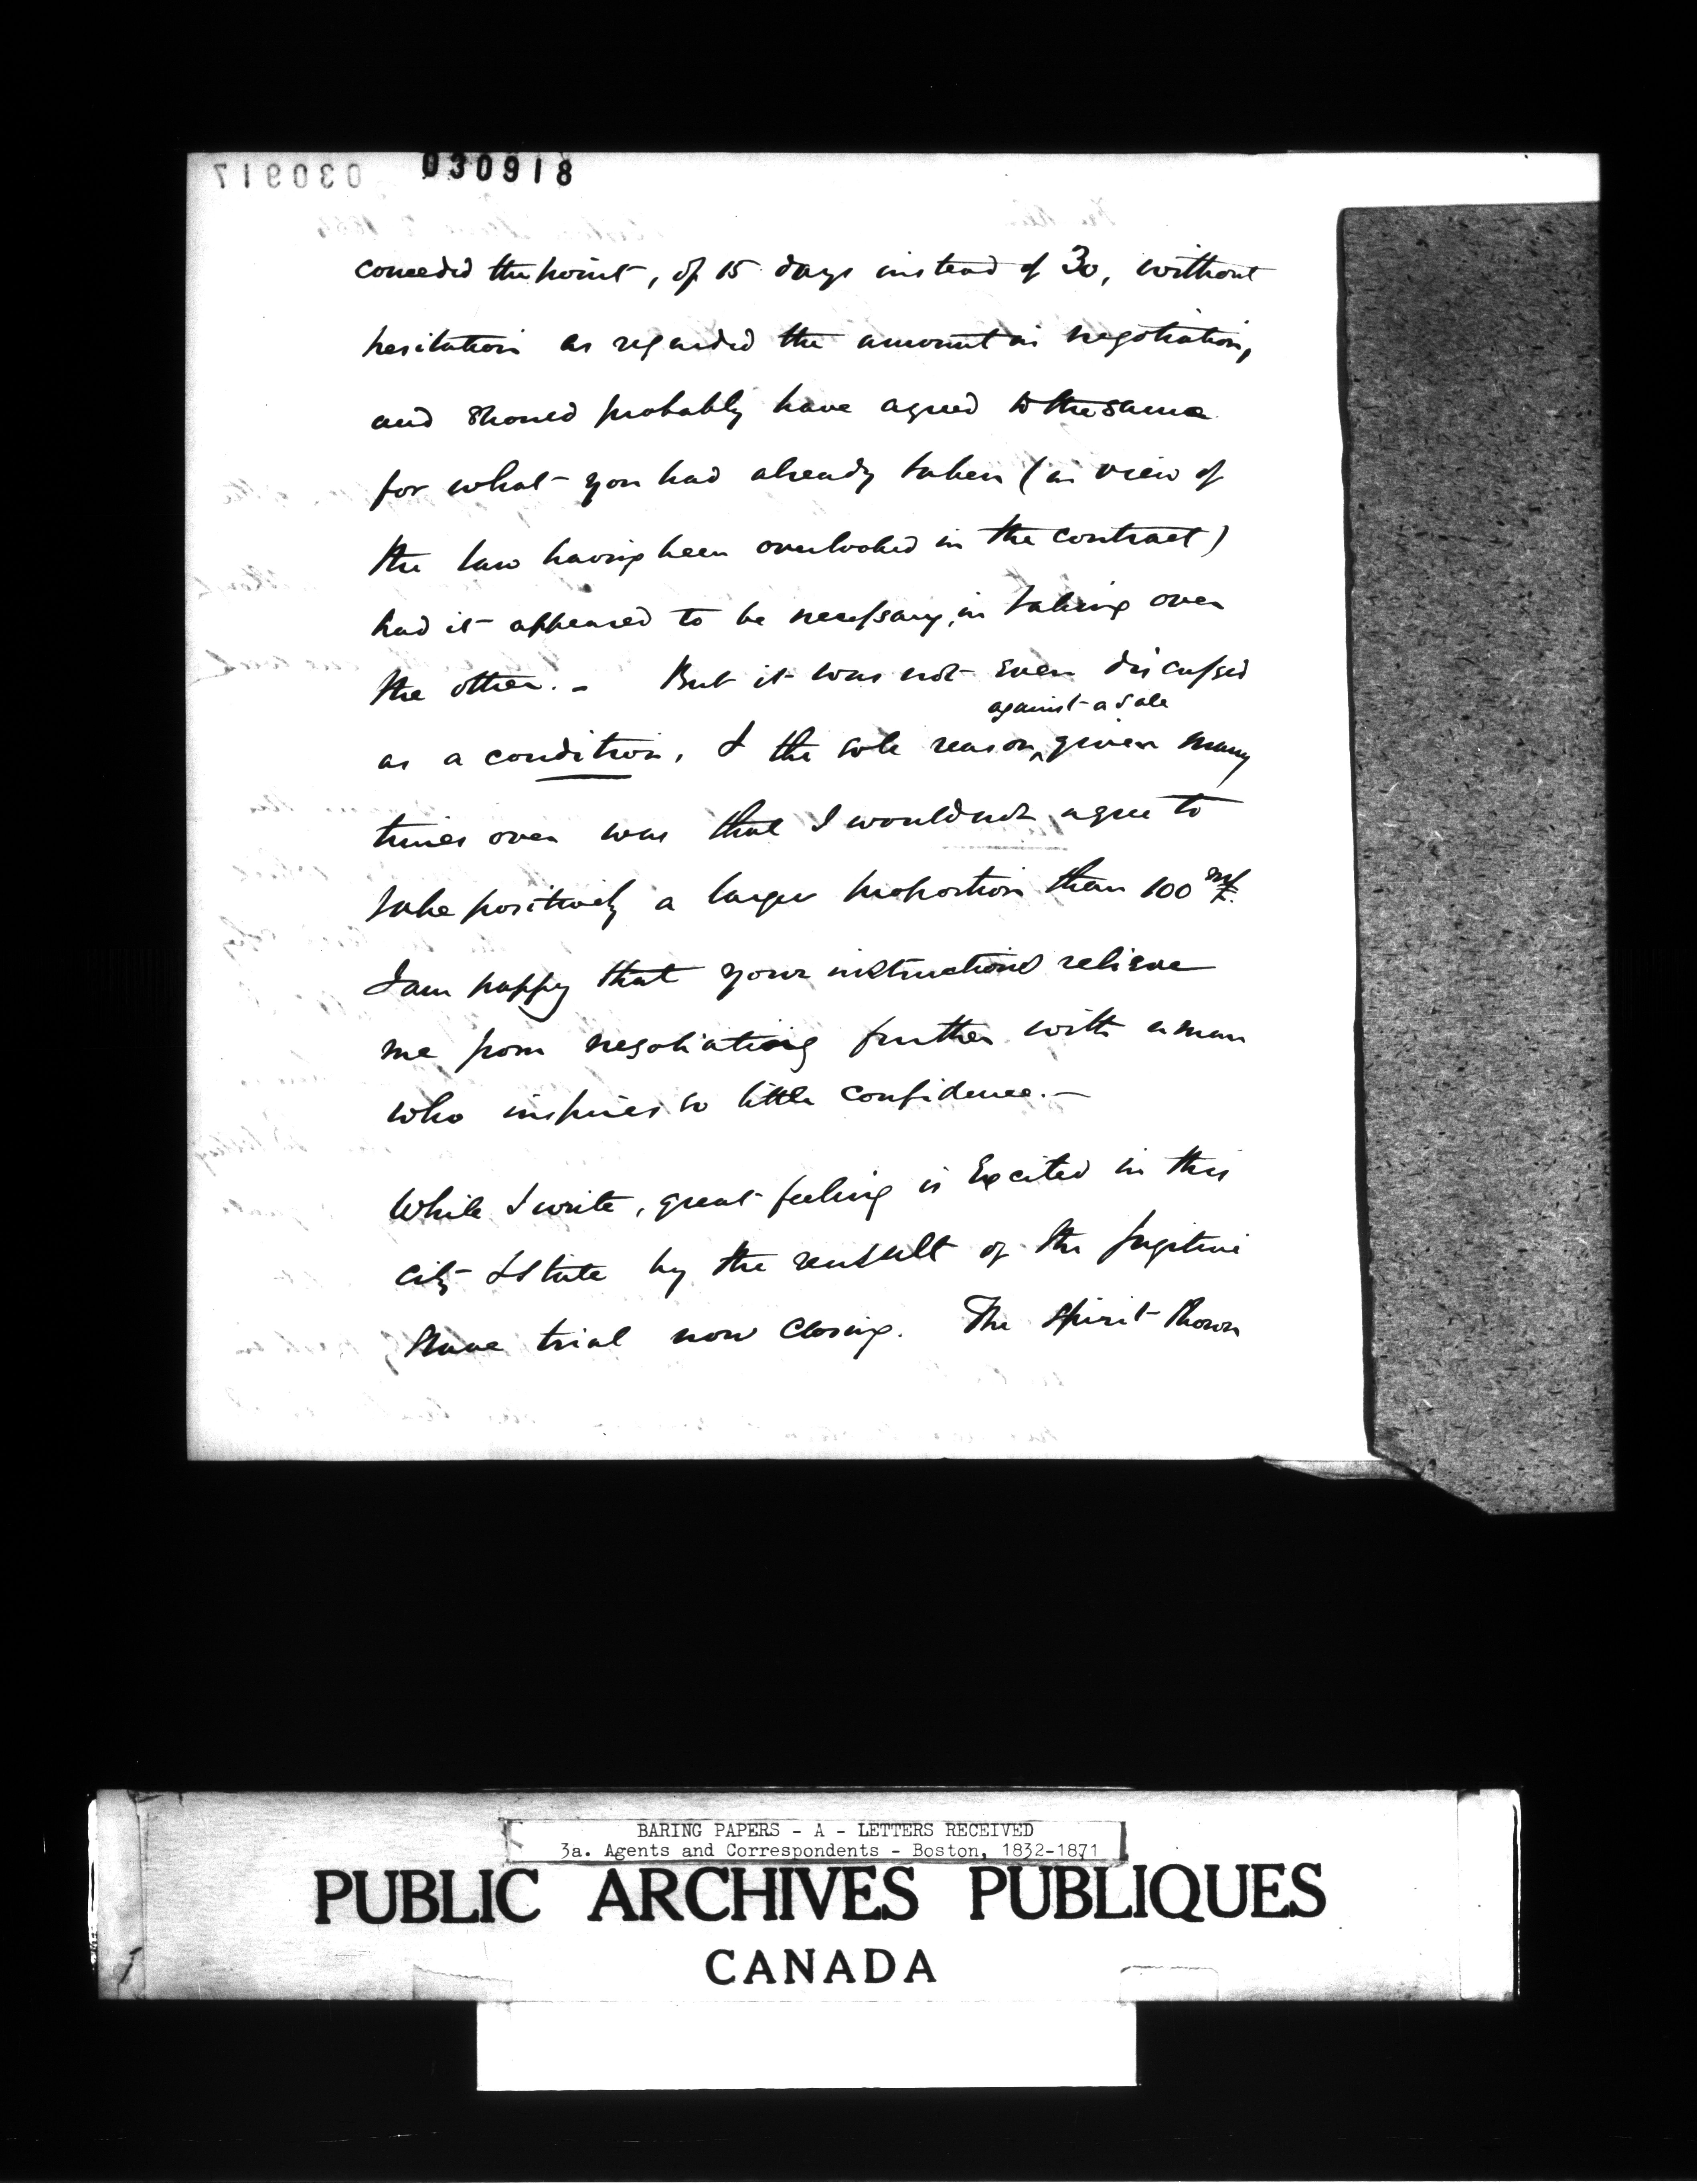 030917 030918
conceded the point, of 15 days instead of 30, without
hesitation as regarded the amount in negotiation,
and should probably have agreed to the same
for what you had already taken (in view of
the law having been overlooked in the contract)
had it appeared to be necessary, in taking over
the other. - But it was not even discussed
against a sale
as a condition, & the sole reason ^ given many
times over was that I would not agree to
take positively a larger proportion than 100
I am happy that your instructions relieve
me from negotiating further with a man
who inspires so little confidence. -
While I write, great feeling is Excited in this
city & State by the result of the fugitive
Slave trial now closing. The spirit shown
BARING PAPERS - A - LETTERS RECEIVED
3a. Agents and Correspondents - Boston, 1832-1871
PUBLIC ARCHIVES PUBLIQUES
CANADA